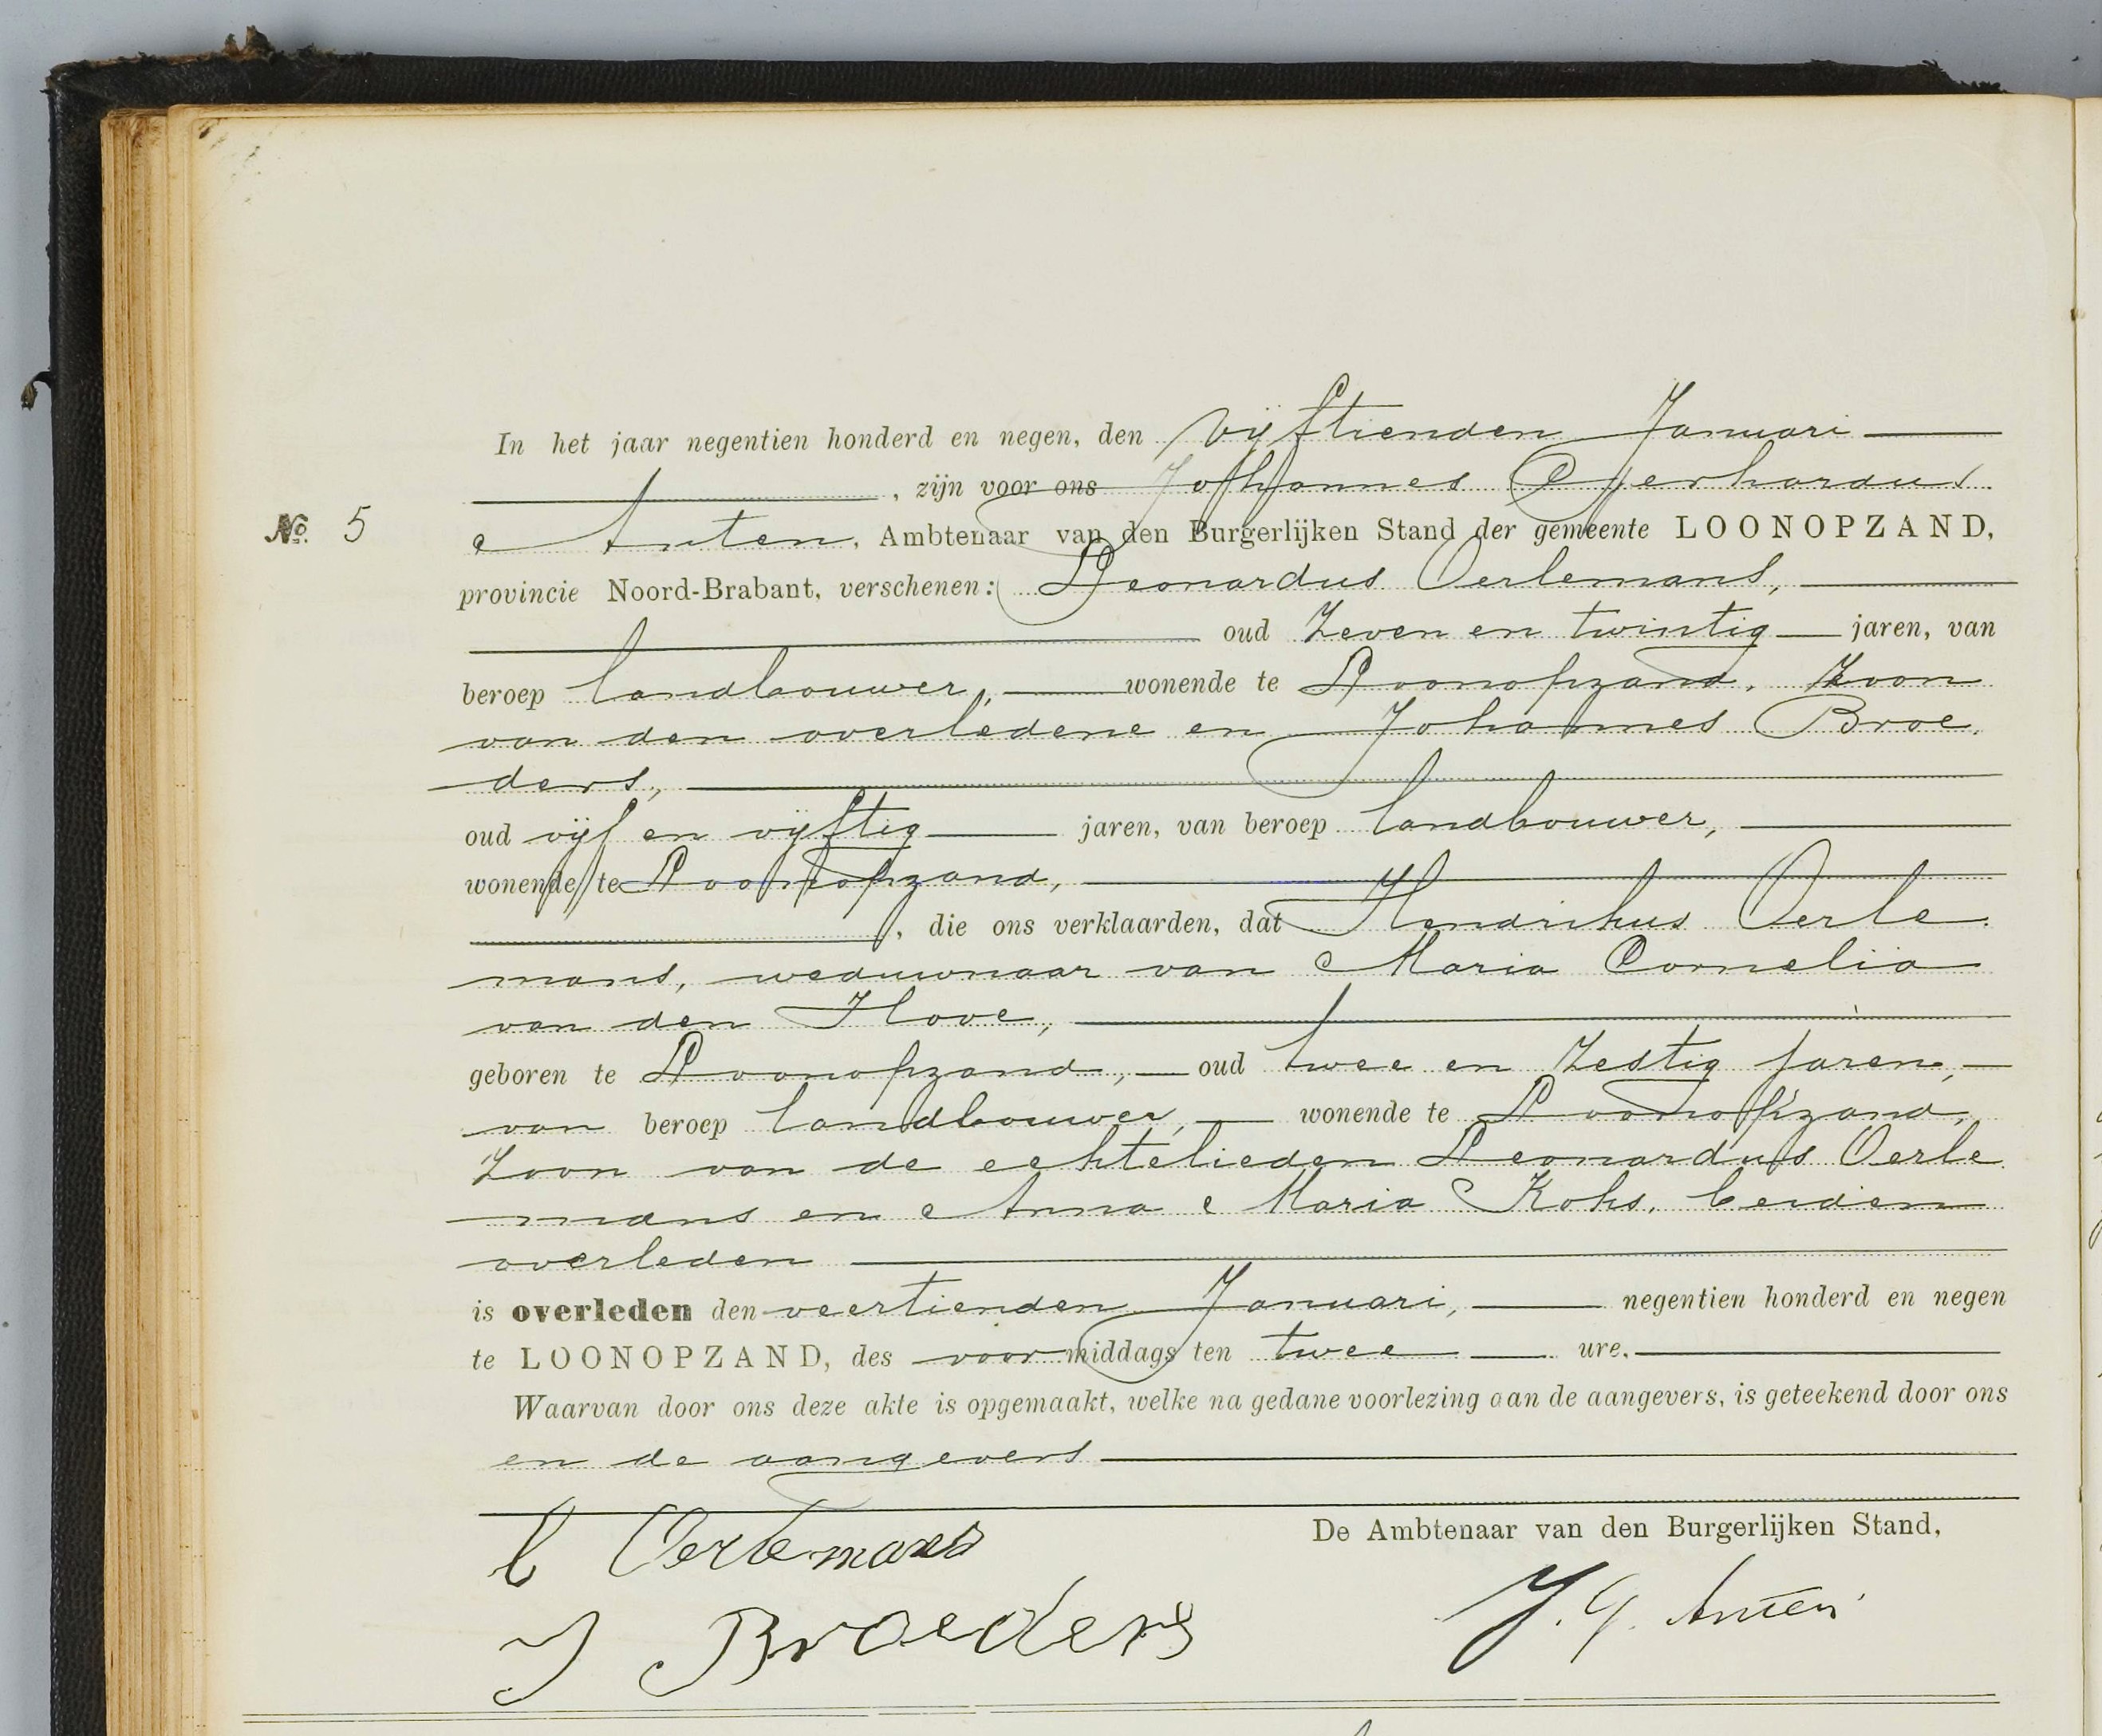 In het jaar negentien honderd en negen, den vijftienden Januari
, zijn voor ons Johannes Gerhardus
Nº. 5
Anten, Ambtenaar van den Burgerlijken Stand der gemeente LOONOPZAND,
provincie Noord-Brabant, verschenen: Leonardus Oerlemans,
oud Zeven en twintig jaren, van
beroep landbouwer, wonende te Loonopzand, Zoon
van den overledene en Johannes Broe
ders,
oud vijf en vijftig jaren, van beroep landbouwer,
wonende te Loonopzand,
, die ons verklaarden, dat Hendrikus Oerle
mans, weduwnaar van Maria Cornelia
van den Hove,
geboren te Loonopzand, oud twee en Zestig jaren,
van beroep landbouwer, wonende te Loonopzand,
Zoon van de echtelieden Leonardus Oerle
mans en Anna Maria Koks, beiden
overleden
is overleden den veertienden Januari, negentien honderd en negen
te LOONOPZAND, des voormiddags ten twee ure.
Waarvan door ons deze akte is opgemaakt, welke na gedane voorlezing aan de aangevers, is geteekend door ons
en de aangevers
L Oerlemans
De Ambtenaar van den Burgerlijken Stand,
J Broeders
J. G. Anten